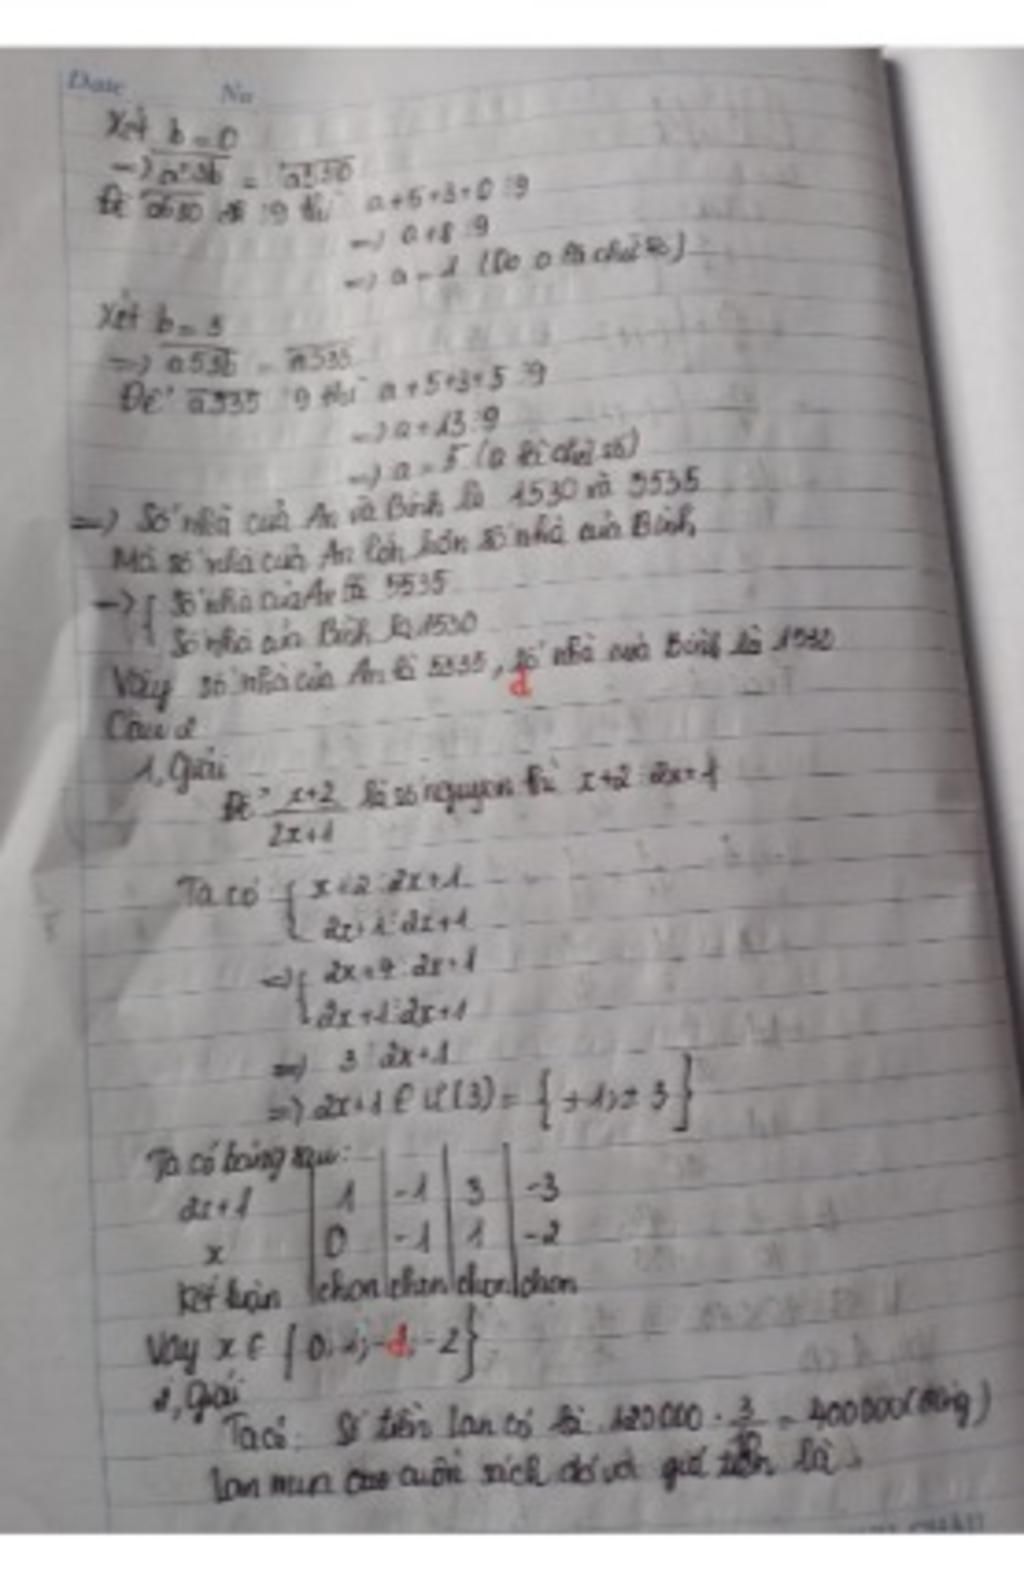 Date No
Xét b = 0
=> a53b = a530
Để a530 ⋮ 9 thì a+5+3+0 ⋮ 9
=> a+8 ⋮ 9
=> a = 1 (Do a là chữ số)
Xét b = 5
=> a53b = a535
Để a535 ⋮ 9 thì a+5+3+5 ⋮ 9
=> a+13 ⋮ 9
=> a = 5 (a là chữ số)
=> Số nhà của An và Bình là 1530 và 5535
Mà số nhà của An lớn hơn số nhà của Bình
=> { Số nhà của An là 5535
Số nhà của Bình là 1530
Vậy số nhà của An là 5535, số nhà của Bình là 1530
Câu 2
1, Giải
Để x+2 / 2x+1 là số nguyên thì x+2 ⋮ 2x+1
Ta có { x+2 ⋮ 2x+1
2x+1 ⋮ 2x+1
=> { 2x+4 ⋮ 2x+1
2x+1 ⋮ 2x+1
=> 3 ⋮ 2x+1
=> 2x+1 ∈ Ư(3) = {±1; ±3}
Ta có bảng sau:
2x+1 | 1 | -1 | 3 | -3
x | 0 | -1 | 1 | -2
Kết luận | chọn | chọn | chọn | chọn
Vậy x ∈ {0; -2}
2, Giải
Ta có: Số tiền Lan có là = 400000 (đồng)
Lan mua cuốn sách đó với giá tiền là: